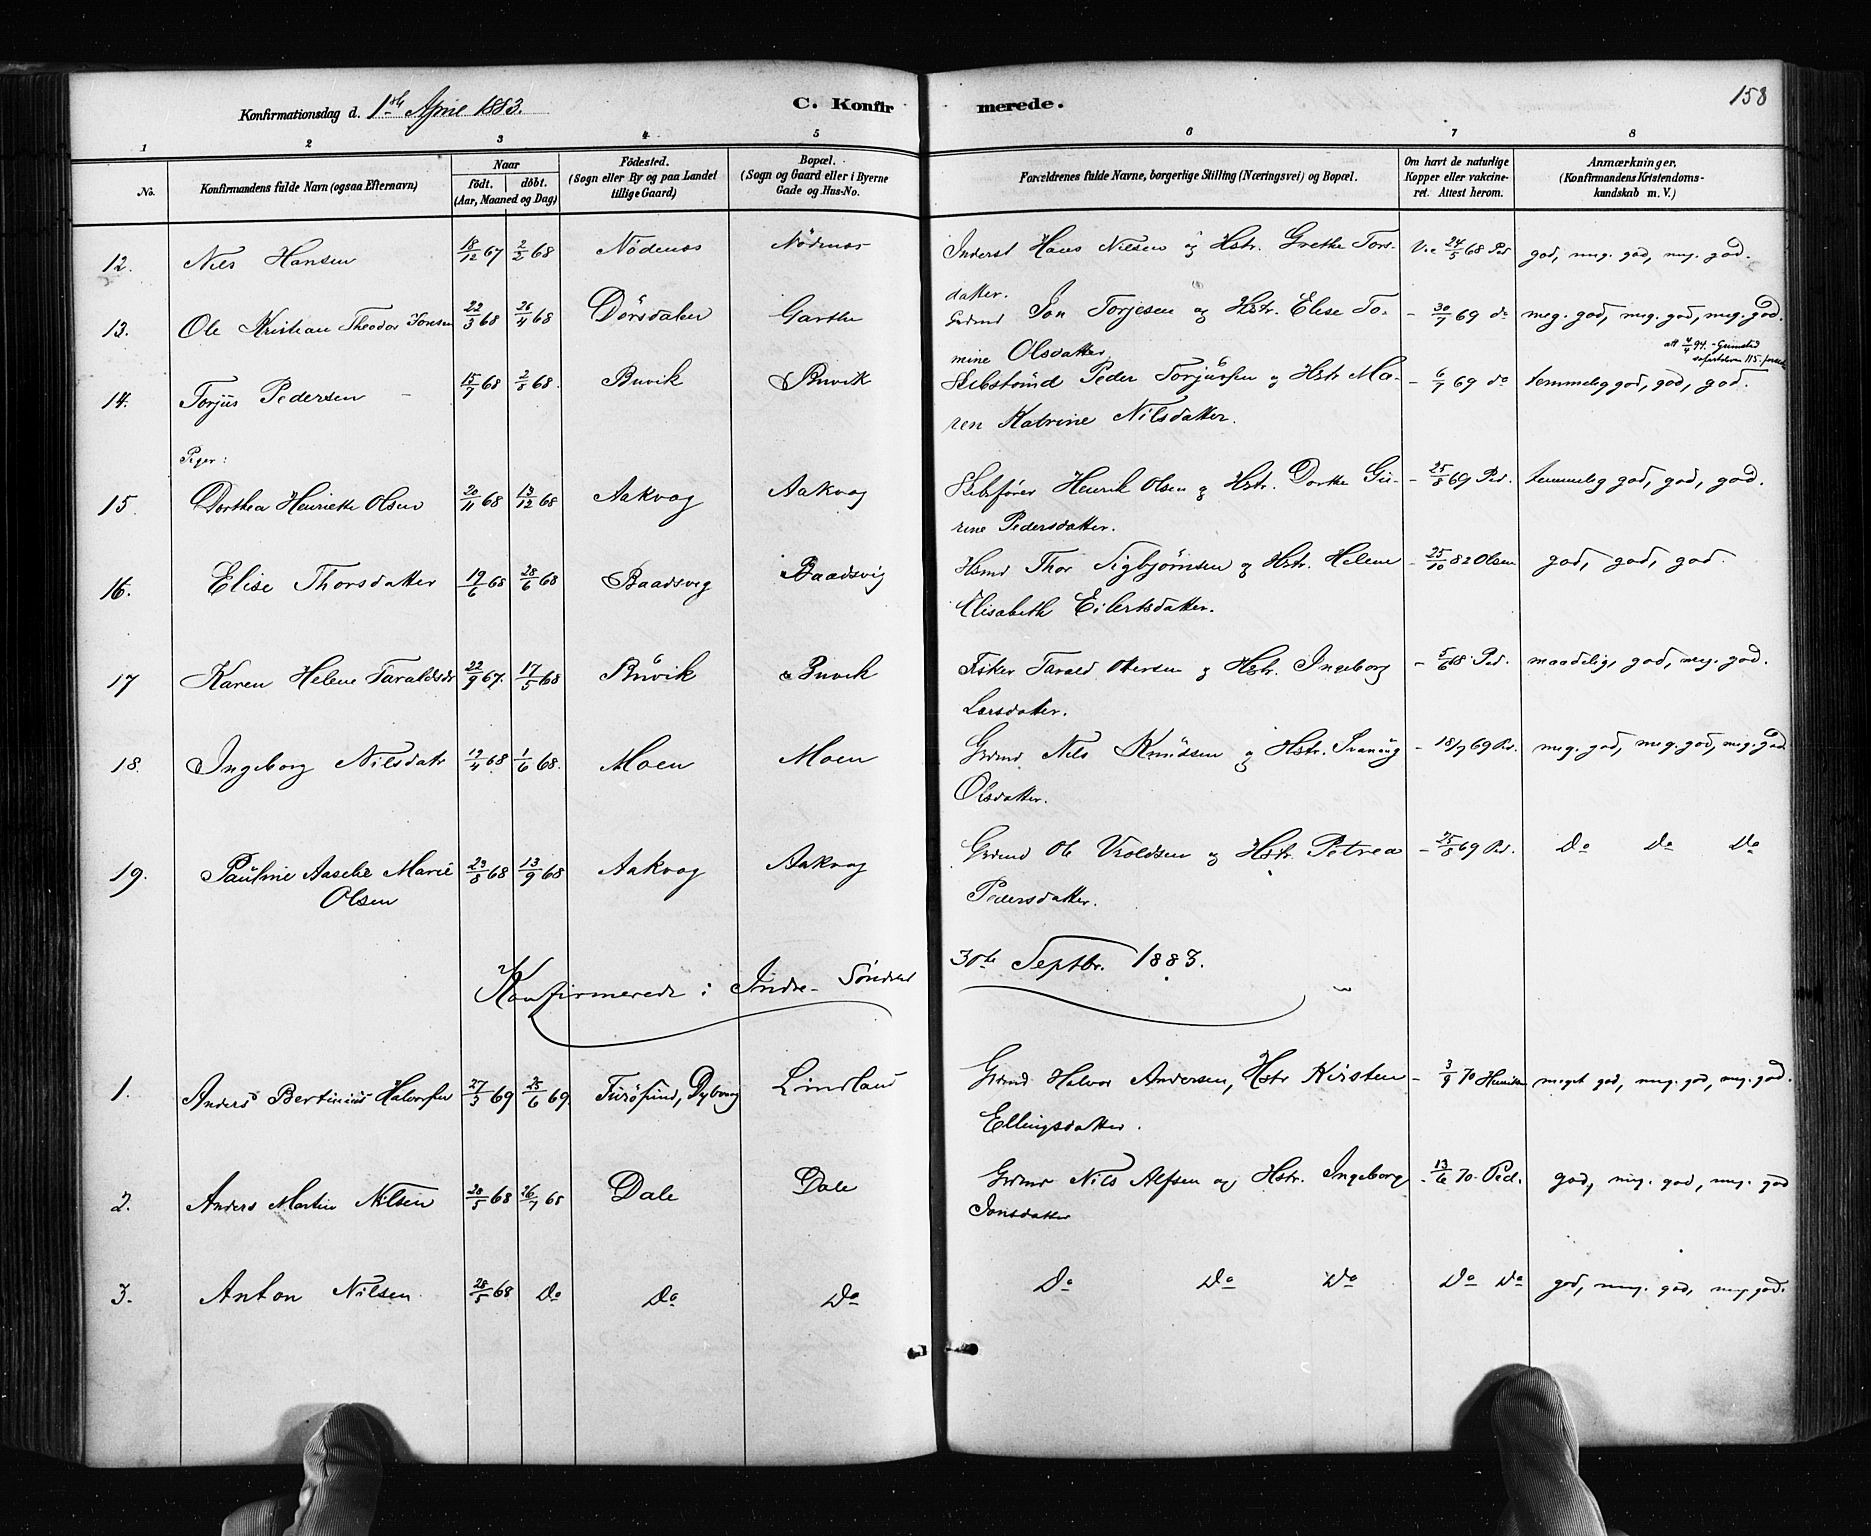 Konfirmationsdag d. 1ste April 1883. C. Konfirmerede. 158
1 2 3 4 5 6 7 8
No. Konfirmandens fulde Navn (ogsaa Efternavn) Naar födt. döbt. (Aar, Maaned og Dag) Födested. (Sogn eller By og paa Landet tillige Gaard) Bopæl. (Sogn og Gaard eller i Byerne Gade og Hus-No. Forældrenes fulde Navne, borgerlige Stilling (Næringsvei) og Bopæl. Om havt de naturlige Kopper eller vakcineret. Attest herom. Anmærkninger. (Konfirmandens Kristendomskundskab m. V.)
12. Nils Hansen 18/12 67 2/2 68 Nödenes Nödenes Inderst Hans Nilsen og Hstr. Grethe Tors- 24/5 68 Ped god, meg. god, meg. god.
datter.
13. Ole Kristian Theodor Jonsen 22/3 68 26/4 68 Dörsdalen Garthe Grdmd Jon Torjesen og Hstr. Elise To- - 30/7 69 do meg. god, meg. god, meg. god.
mine Olsdatter
att 4/4 94. - Grimstad
14. Torjus Pedersen 15/7 68 2/8 68. Buvik Buvik Skibstömd Peder Torjusen og Hstr Ma- - 6/7 69 do temmelig god, god, god.
ren Katrine Nilsdatter.
Piger:
15. Dorthea Henriette Olsen 20/11 68 13/12 68 Aakvag Aakvag Skibsförer Henrik Olsen og Hstr. Dorthe Gu- - 25/8 69 Ped. temmelig god, god, god.
rine Pedersdatter.
16. Elise Thorsdatter 19/6 68 28/6 68 Baadsvig Baadsvig Hsmd Thor Sigbjörnsen og Hstr. Helene - 25/10 82 Olsen god, god, god.
Elisabeth Eilertsdatter.
17 Karen Helene Taraldsdr 22/9 67. 17/5 68 Buvik Buvik Fisker Tarald Olsen og Hstr. Ingeborg - 5/6 68 Ped. maadelig, god, meg. god.
Larsdatter.
18. Ingeborg Nilsdatr 12/4 68 1/6 68. Moen Moen Grdmd Nils Knudsen og Hstr. Svanaug - 18/9 69 Pd. meg. god, meg. god, meg. god
Olsdatter.
19. Pauline Aasche Marie 23/8 68 13/9 68 Aakvag Aakvag Grdmd Ole Vroldsen og Hstr. Petrea - 25/8 69 Pd. Do Do Do
Olsen Pedersdatter.
Konfirmerede i Indre- Söndeled 30te Septbr. 1883.
1. Anders Bertinius Halvorsen 27/3 69 25/6 69. Furösund, Dybvag Lindland Grdmd Halvor Andersen, Hstr Kirsten - 3/9 70 meget god, meg. god, meg. god.
Ellingsdatter.
2. Anders Martin Nilsen 20/5 68 26/7 68 Dale Dale Grdmd Nils Alfsen og Hstr. Ingeborg - 13/6 70. Ped. god, meg. god, meg. god
Jonsdatter
3. Anton Nilsen. 28/5 68 Do Do Do Do Do Do Do Do god, meg. god, meg god.